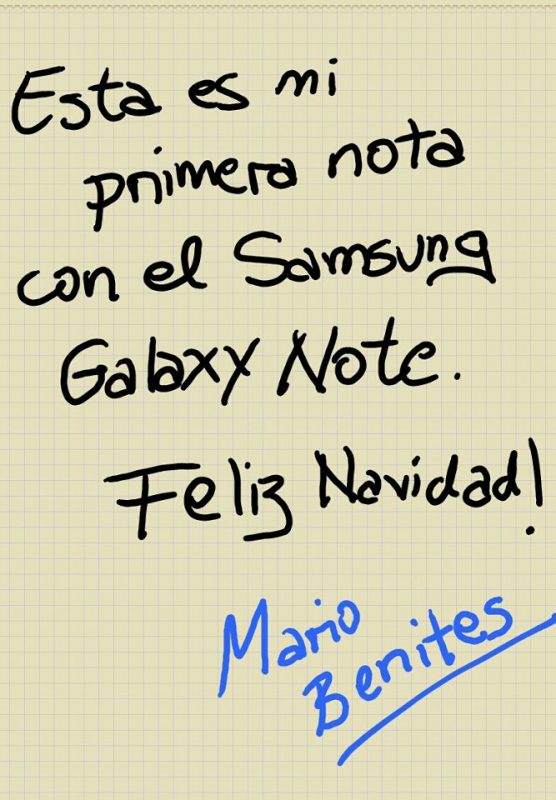 Esta es mi
primera nota
con el Samsung
Galaxy Note.
Feliz Navidad!
Mario
Benites